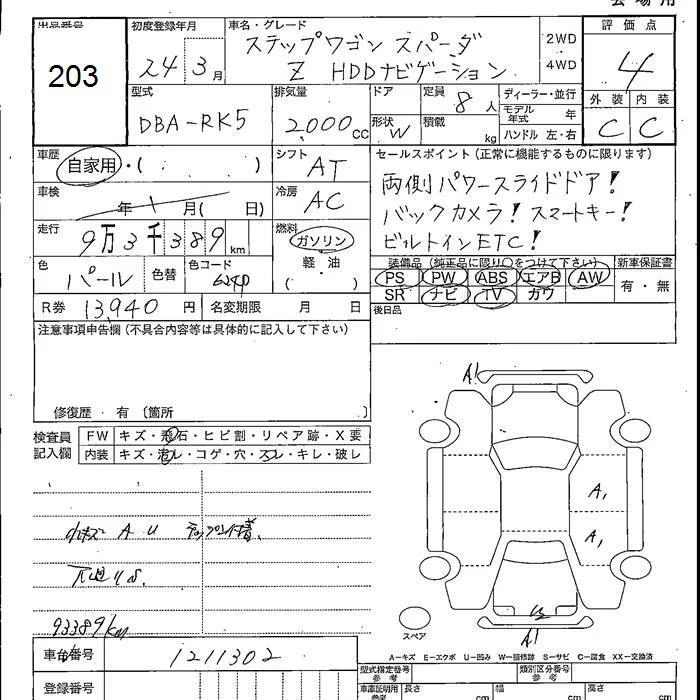 出品番号
203
初度登録年月
24年3月
車名・グレード
ステップワゴン スパーダ
Z HDDナビゲーション
2WD
4WD
評価点
4
外装 内装
C C
型式
DBA-RK5
排気量
2,000cc
ドア
形状 W
定員 8人
積載 kg
ディーラー・並行
モデル年式 年
ハンドル 左・右
車歴
自家用・( )
シフト
AT
車検
年 月( 日)
冷房
AC
走行
9万3千389km
燃料
ガソリン
軽・油
( )
色
パール
色替
色コード
6240
R券 13,940円
名変期限 月 日
セールスポイント(正常に機能するものに限ります)
両側パワースライドドア!
バックカメラ! スマートキー!
ビルトインETC!
装備品(純正品に限り○をつけて下さい) 新車保証書
PS PW ABS エアB AW
SR ナビ TV カワ
有・無
後日品
注意事項申告欄(不具合内容等は具体的に記入して下さい)
修復歴・有(箇所 )
検査員
記入欄
FW キズ・飛石・ヒビ割・リペア跡・X要
内装 キズ・汚レ・コゲ・穴・スレ・キレ・破レ
小キズ A U
下廻りS
93389km
車台番号 1211302
登録番号
A1
A1
A1
A1
スペア
A-キズ E-エクボ U-凹み W-補修跡 S-サビ C-腐食 XX-交換済
型式指定番号 参考
類別区分番号 参考
車庫証明用 参考
長さ cm 幅 cm 高さ cm